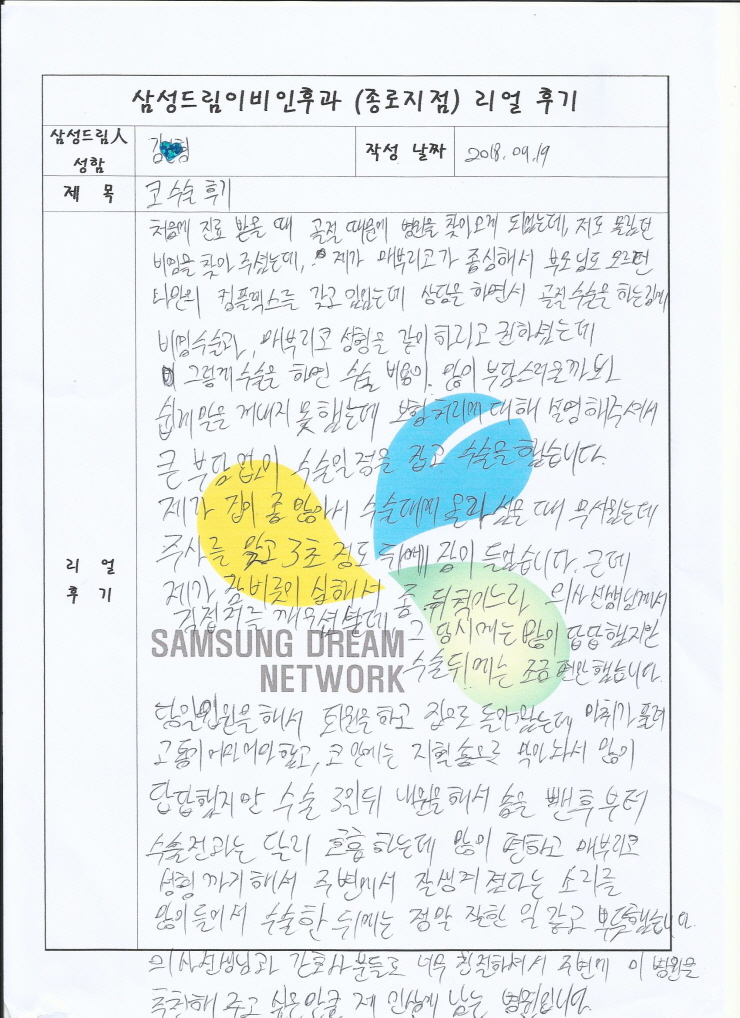 삼성드림이비인후과 (종로지점) 리얼 후기
삼성드림人 성함
김 형
작성 날짜
2018. 09. 19
제 목
코 수술 후기
리 얼 후 기
처음에 진료 받을 때 골절 때문에 병원을 찾아오게 되었는데, 저도 몰랐던
비염을 찾아 주셨는데, 제가 매부리코가 좀 심해서 부모님도 모르던
컴플렉스를 갖고 있었는데 상담을 하면서 골절 수술을 하는김에
비염수술과, 매부리코 성형을 같이 하라고 권하셨는데
그렇게 수술을 하면 수술 비용이 많이 부담스러운까봐
쉽게 말을 꺼내지 못했는데 보험처리에 대해 설명해주셔서
큰 부담없이 수술일정을 잡고 수술을 했습니다.
제가 겁이 좀 많아서 수술대에 올라 섰을 때 무서웠는데
주사를 맞고 3초 정도 뒤에 잠이 들었습니다. 근데
제가 잠버릇이 심해서 좀 뒤척이느라 의사선생님께서
직접 저를 깨우셨는데, 그 당시에는 많이 답답했지만
SAMSUNG DREAM
NETWORK
수술뒤에는 조금 편안했습니다.
당일입원을 해서 퇴원을 하고 집으로 돌아왔는데 마취가 풀려
고통이 어마어마 했고, 코 안에는 지혈 솜으로 막아 놔서 많이
답답했지만 수술 3일뒤 내원을 해서 솜을 뺀후 부터
수술전과는 달리 호흡 하는데 많이 편하고 매부리코
성형 까지 해서 주변에서 잘생겨 졌다는 소리를
많이 들어서 수술한 뒤에는 정말 잘한 일 같고 뿌듯했습니다.
의사선생님과 간호사 분들도 너무 친절하셔서 주변에 이 병원을
추천해 주고 싶은만큼 제 인상에 남는 병원입니다.